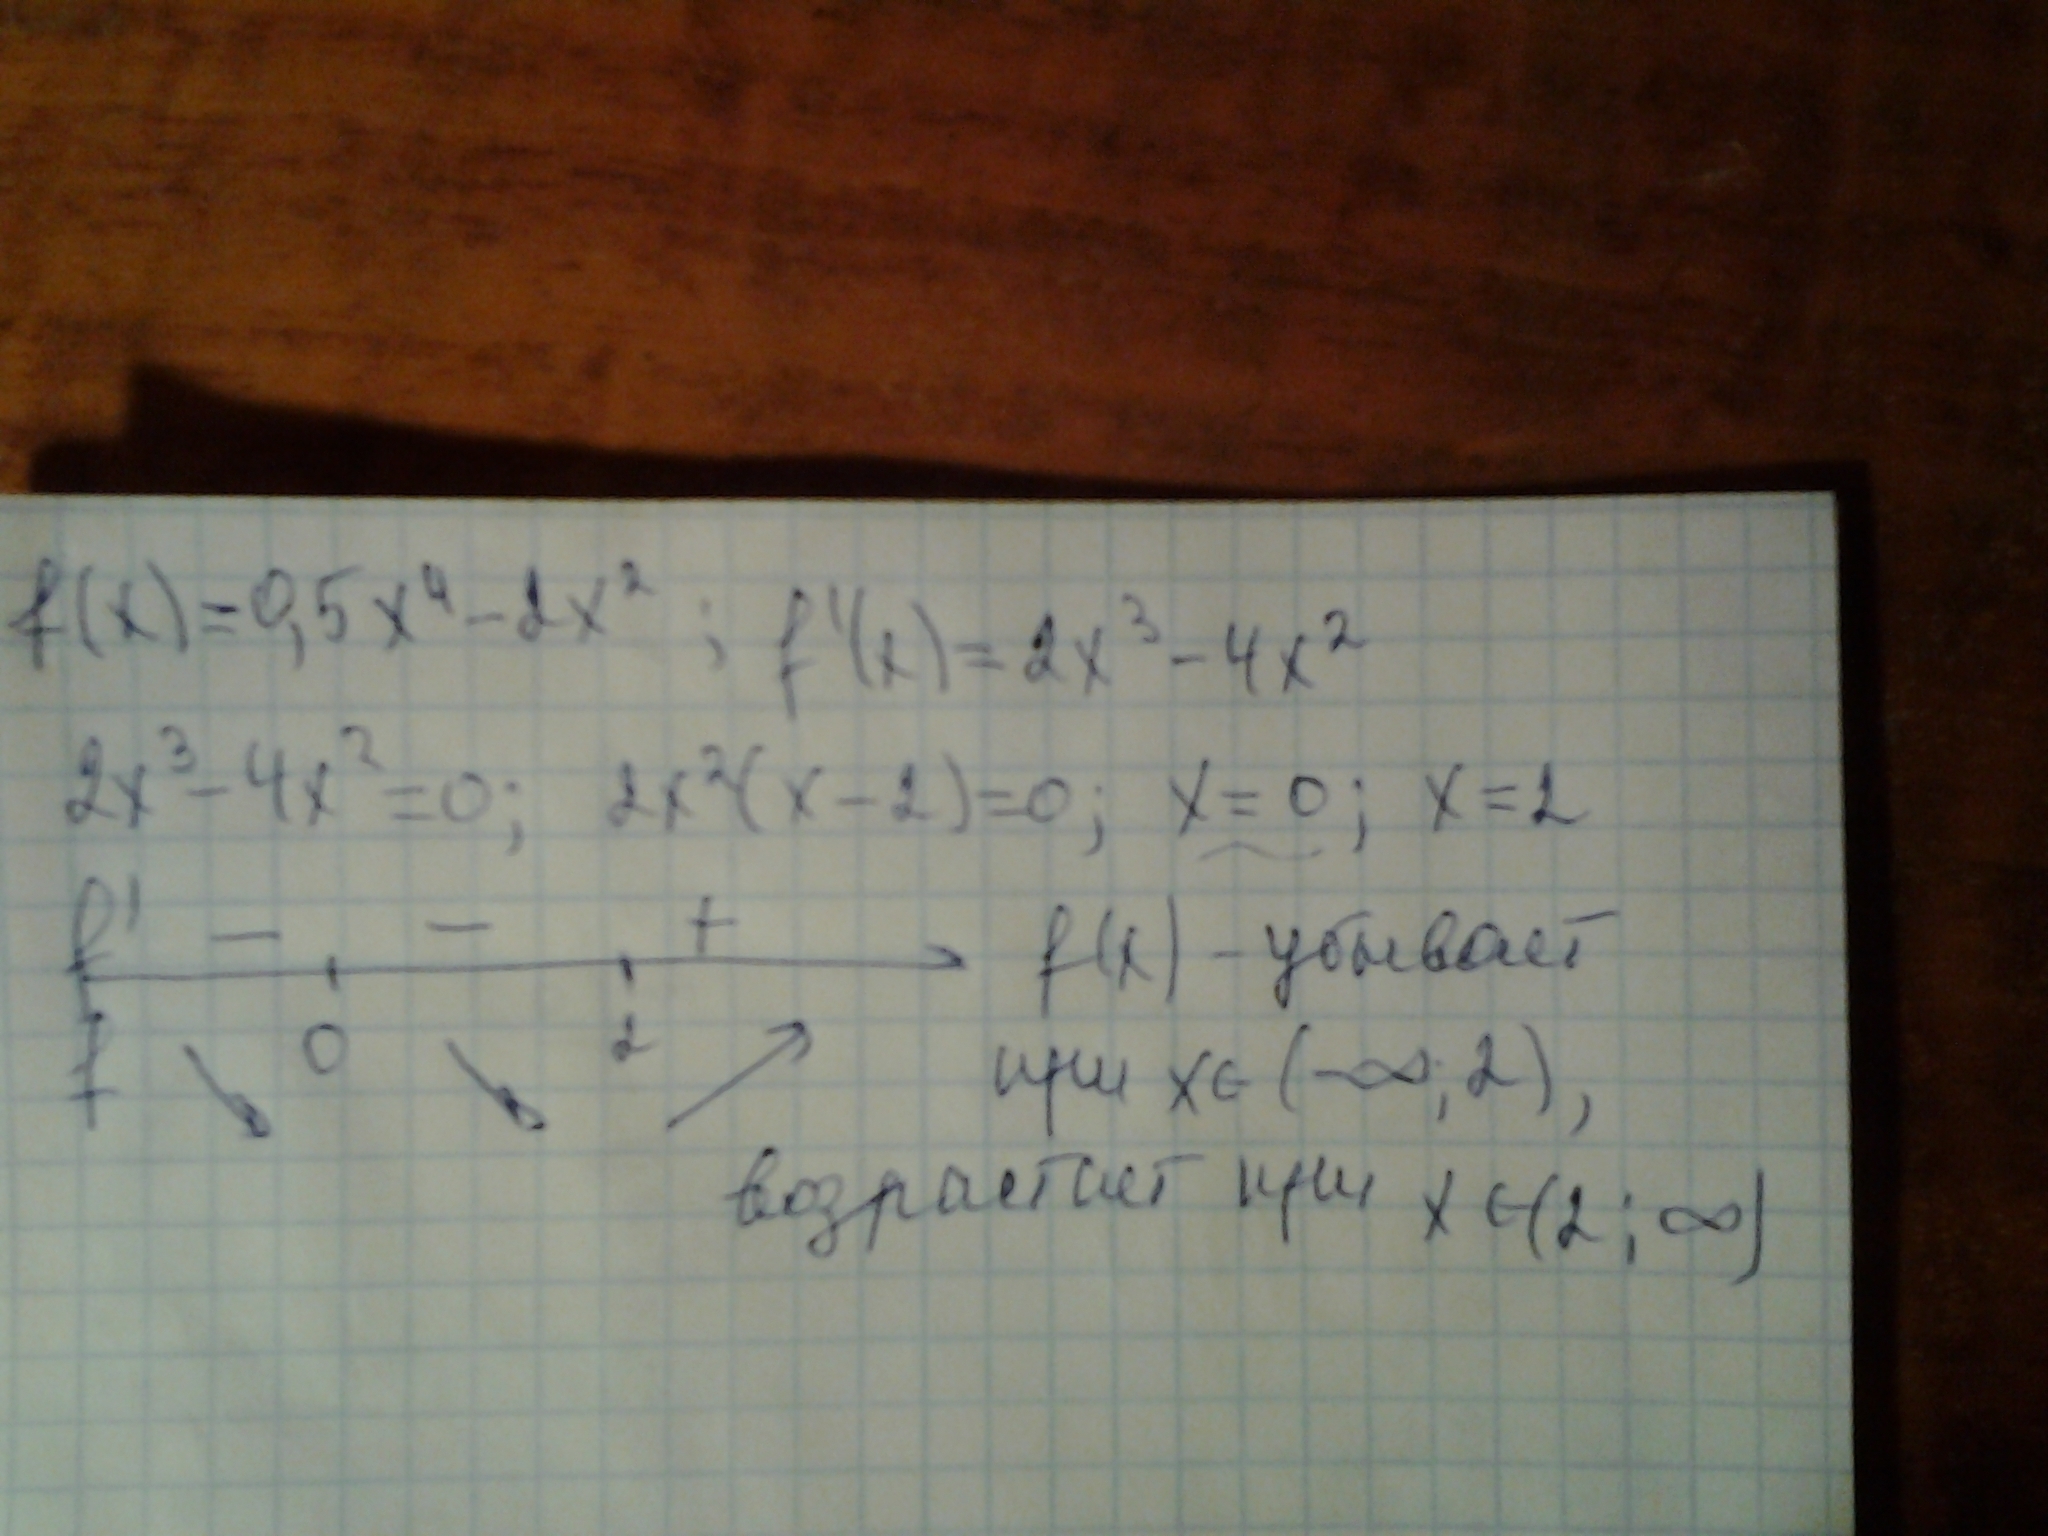 f(x)=0,5x⁴-2x² ; f'(x)=2x³-4x²
2x³-4x²=0; 2x²(x-2)=0; x=0; x=2
f' - - + f(x) - убывает
f 0 2 при x∈(-∞;2),
возрастает при x∈(2;∞)